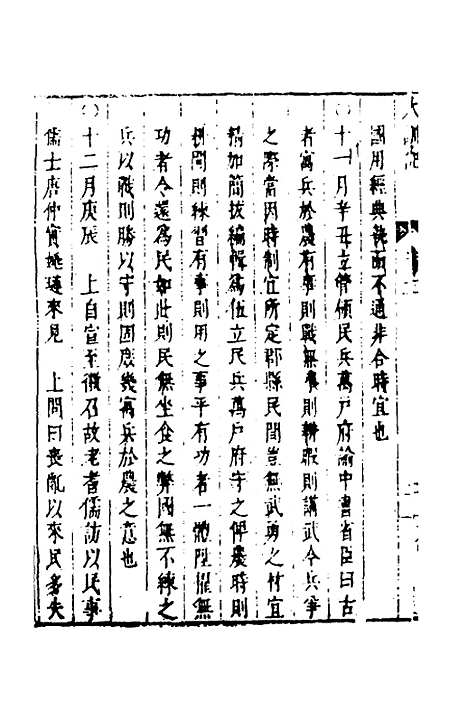 國用經典執而不通非合時宜也
〇十一月辛丑立管領民兵萬戶府諭中書省臣曰古
者寓兵於農有事則戰無事則耕暇則講武今兵爭
之際當因時制宜所定郡縣民間豈無武勇之材宜
精加簡拔編輯為伍立民兵萬戶府守之俾農時則
耕間則練習有事則用之事平有功者一體陞擢無
功者令還為民如此則民無坐食之弊國無不練之
兵以戰則勝以守則固庶幾寓兵於農之意也
〇十二月庚辰　上自宣至徽召故老耆儒訪以民事
儒士唐仲實姚璉來見　上問曰喪亂以來民多失